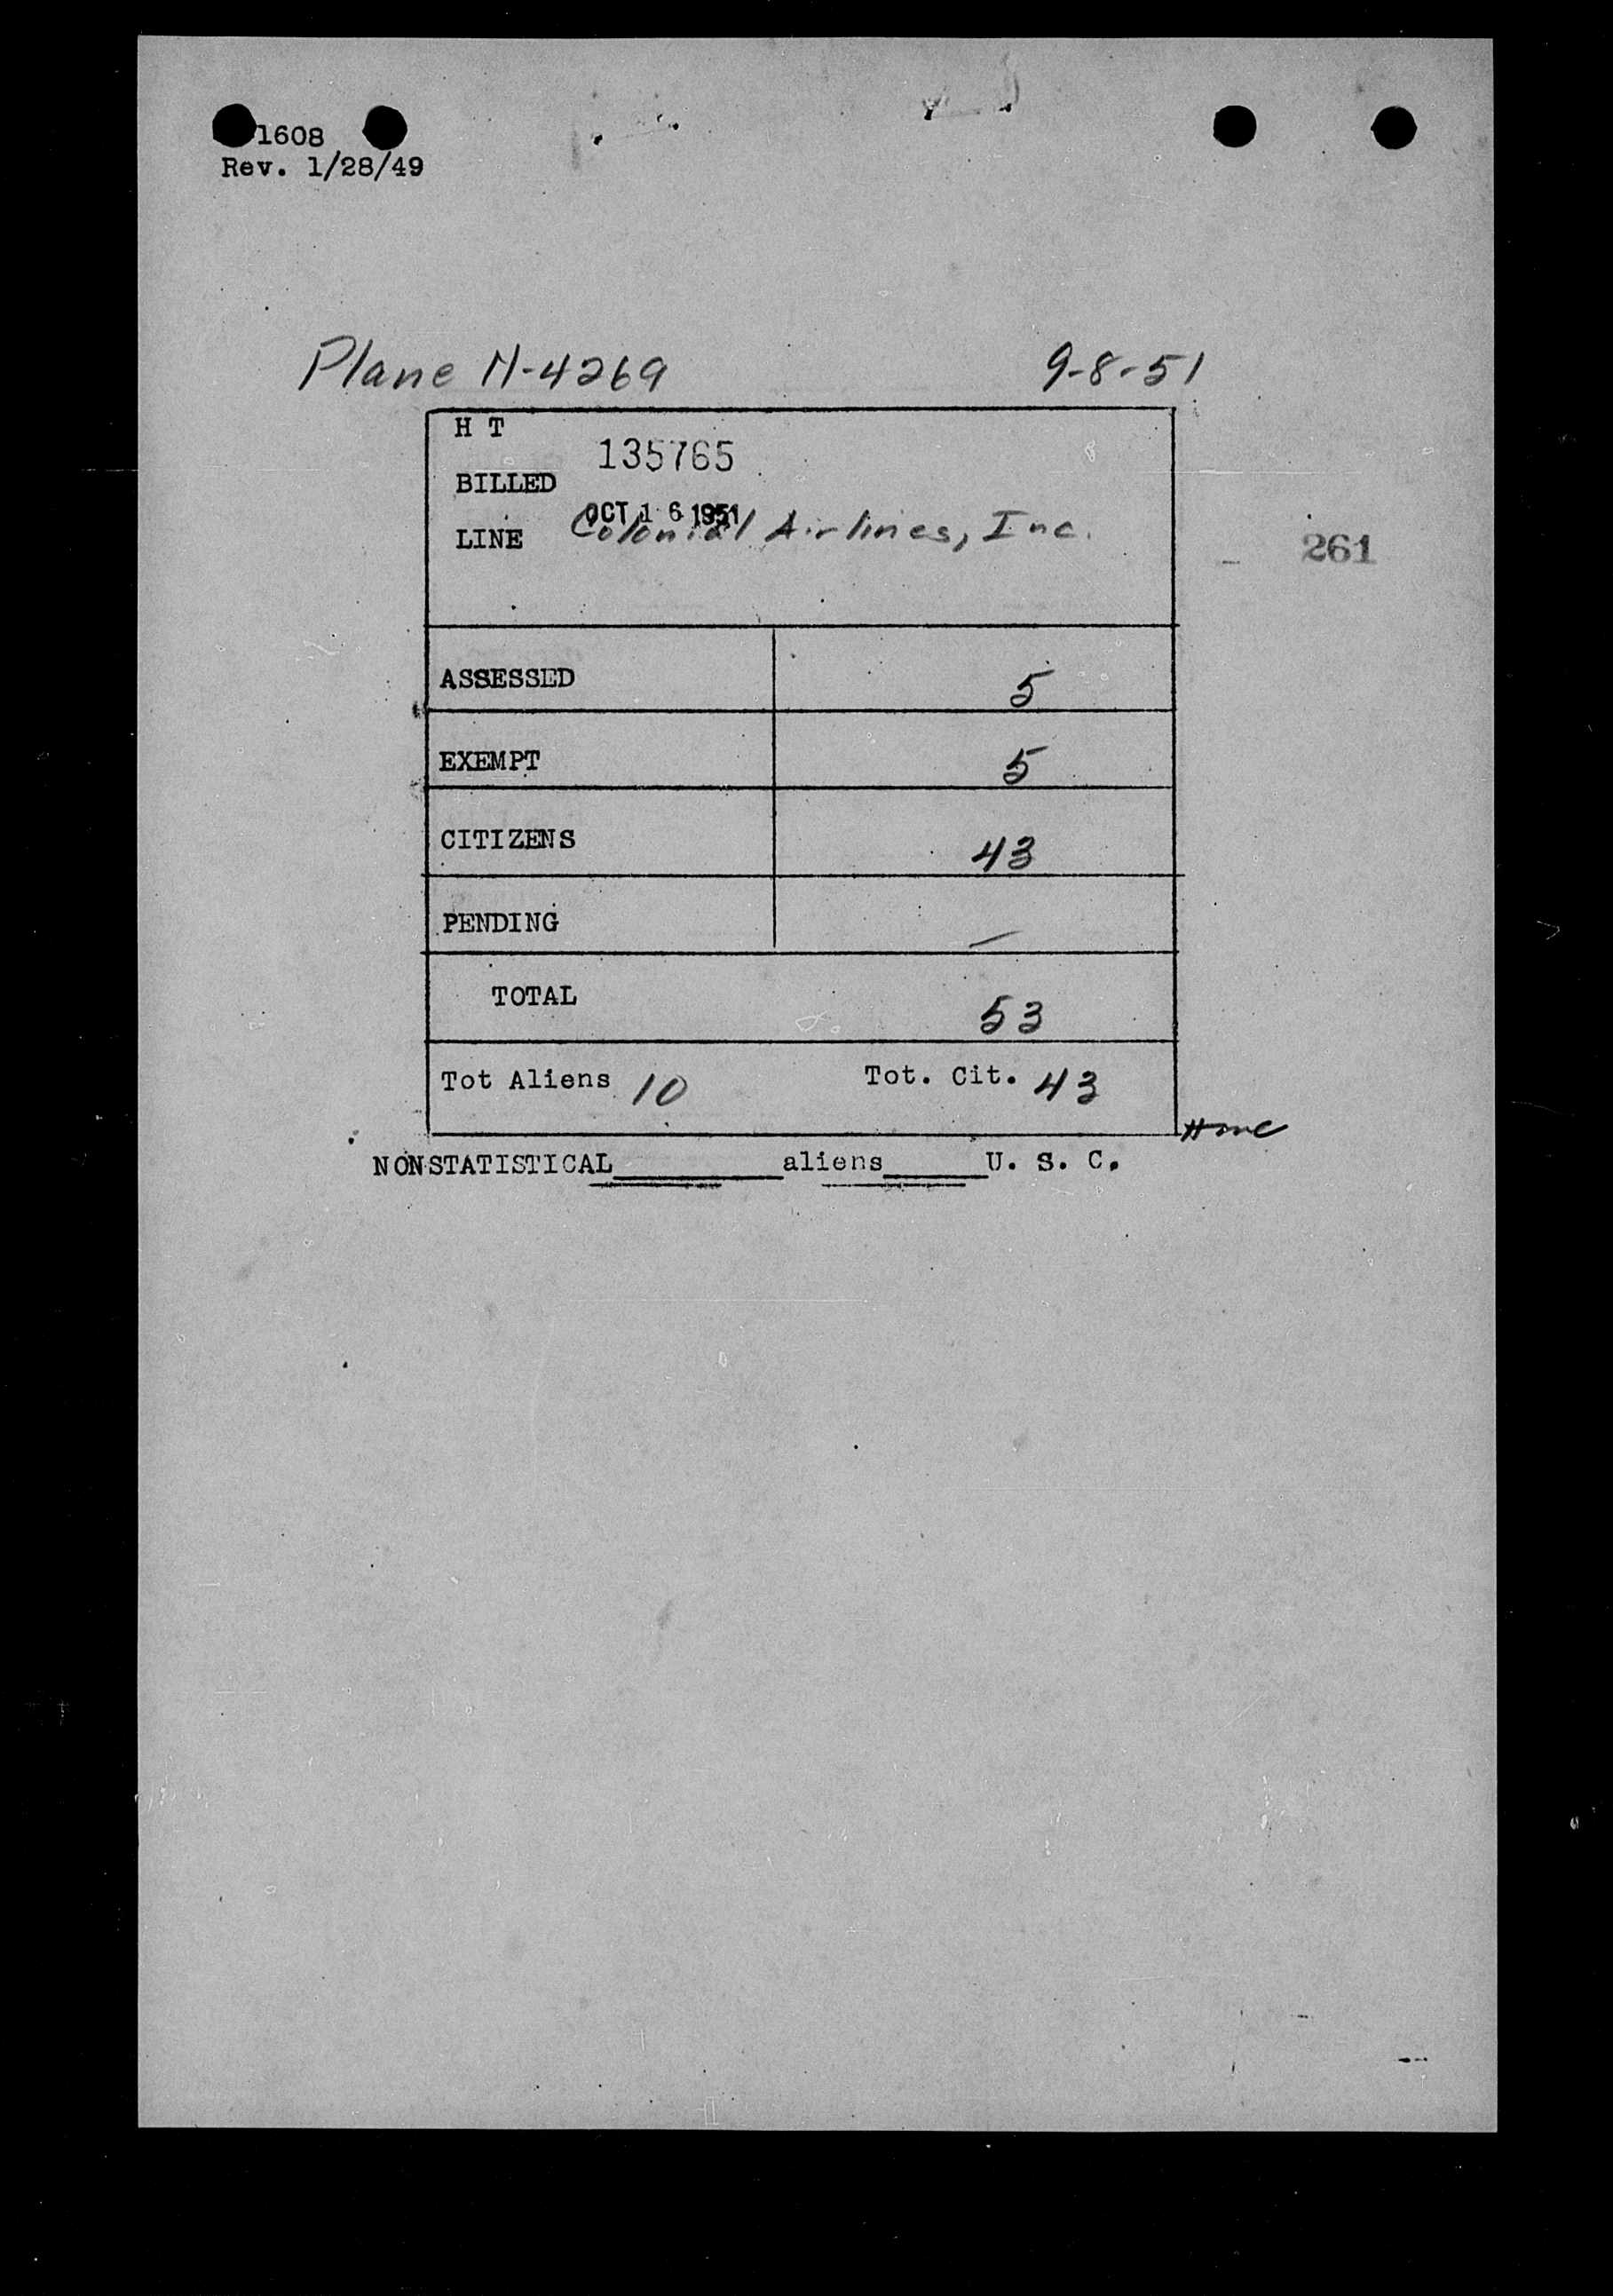 1608
Rev. 1/28/49
Plane N-4269 9-8-51
H T
135765
BILLED
OCT 16 1951
LINE Colonial Airlines, Inc.
261
ASSESSED 5
EXEMPT 5
CITIZENS 43
PENDING —
TOTAL 53
Tot Aliens 10 Tot. Cit. 43
NONSTATISTICAL__________aliens______U. S. C.